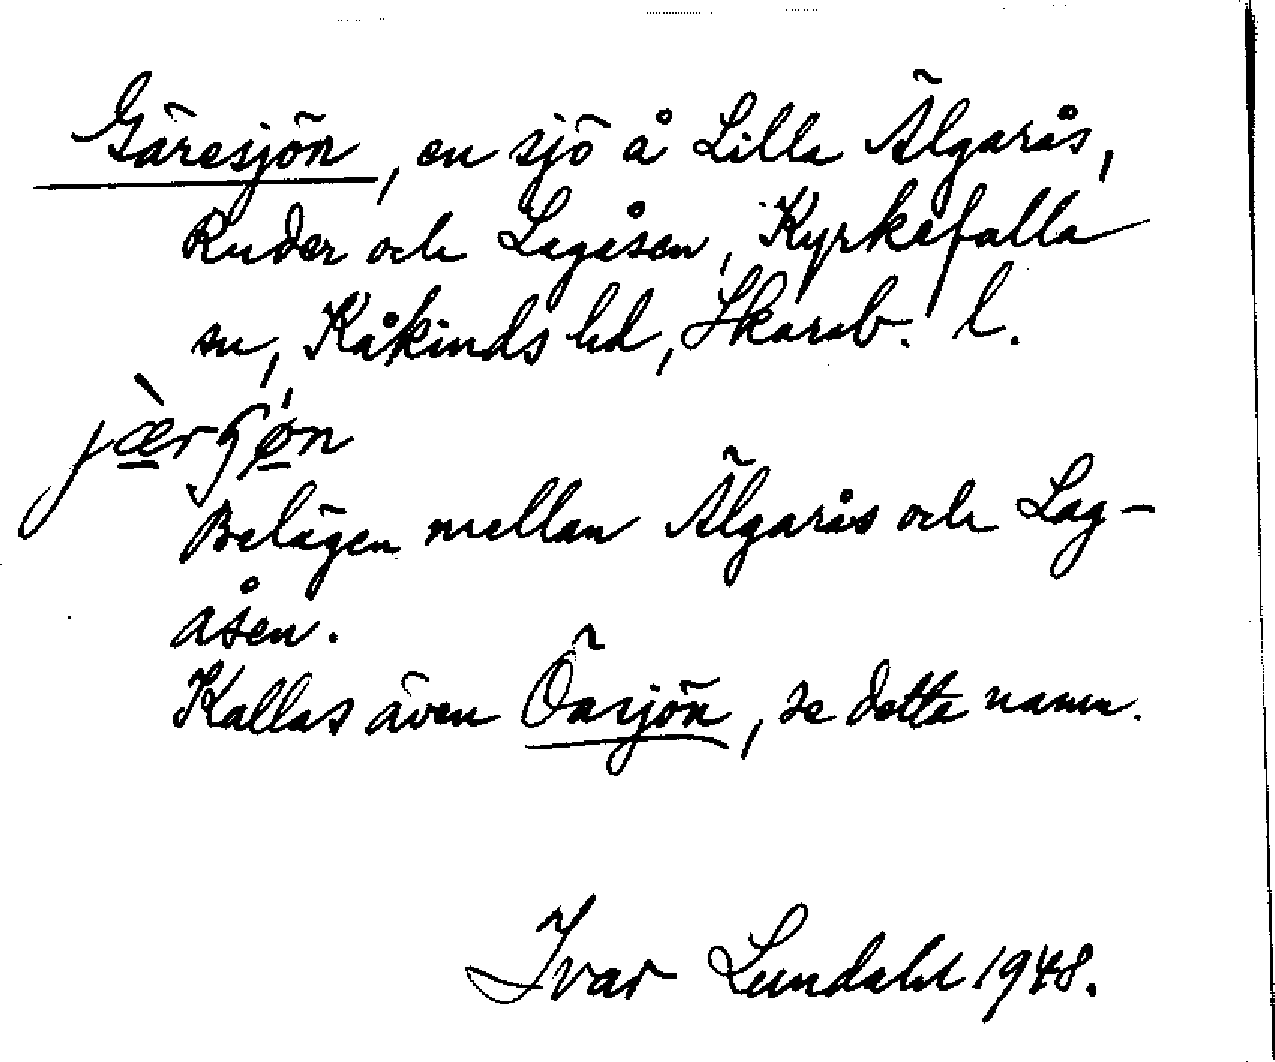 Gäresjön, en sjö å Lilla Älgarås,
Ruder och Lagåsen, Kyrkefalla
sn, Kåkinds hd, Skarab. l.
Belägen mellan Älgarås och Lag-
åsen.
Kallas även Öasjön, se detta namn.
Ivar Lundahl 1948.